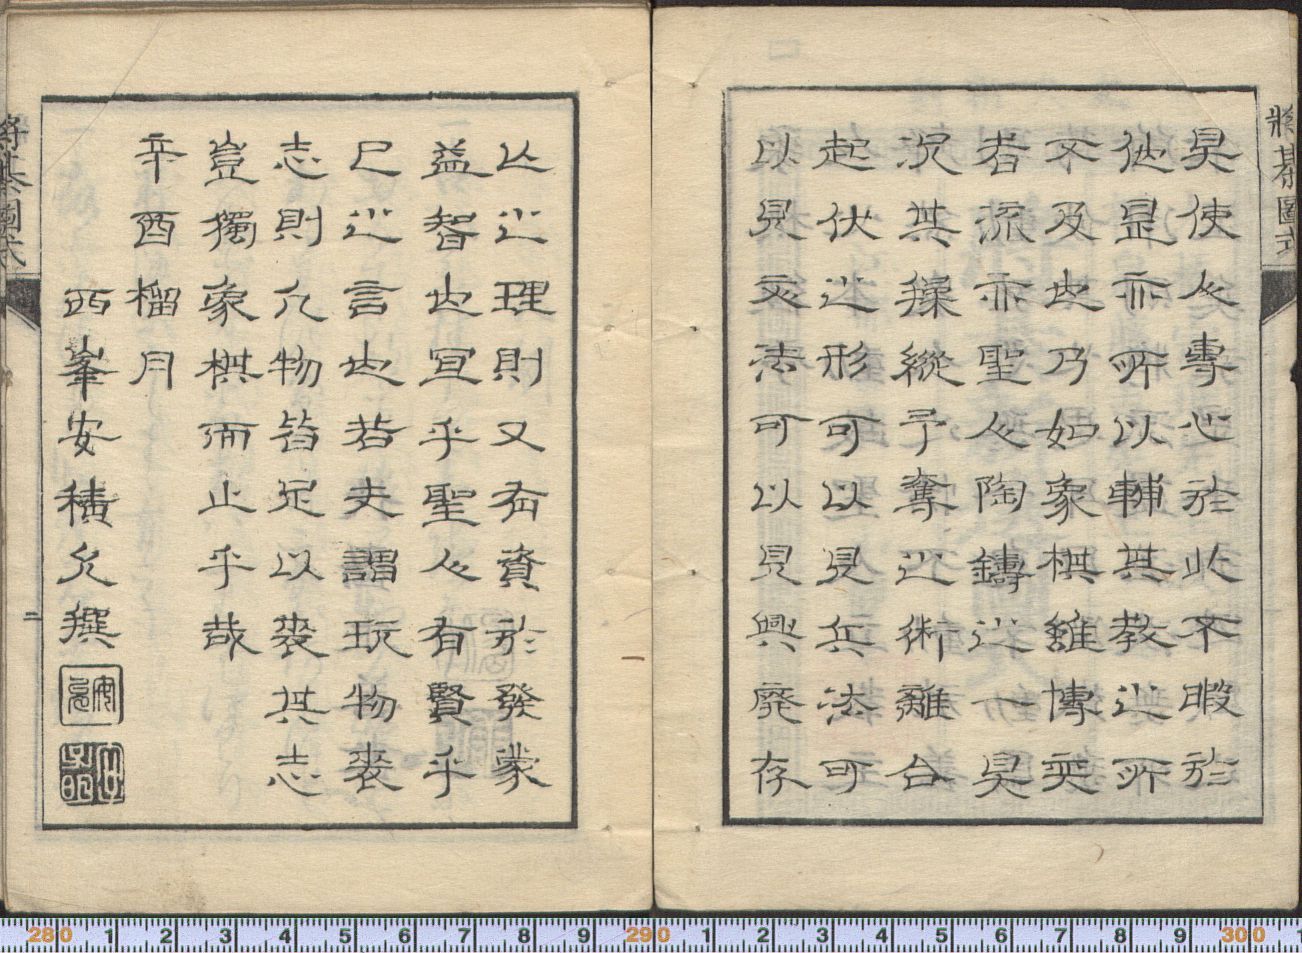 將棊圖式
具使人專心於此不暇於
他是亦所以輔其教之所
不及也乃如象棋雖博奕
者流亦聖人陶鑄之一具
況其操縱予奪之術離合
起伏之形可以見兵法可
以見文法可以見興廢存
亡之理則又有資於發蒙
益智也宜乎聖人有賢乎
已之言也若夫謂玩物喪
志則凡物皆足以喪其志
豈獨象棋而止乎哉
辛酉榴月
西峯安積允撰
將棊圖式
二
280 1 2 3 4 5 6 7 8 9 290 1 2 3 4 5 6 7 8 9 300 1